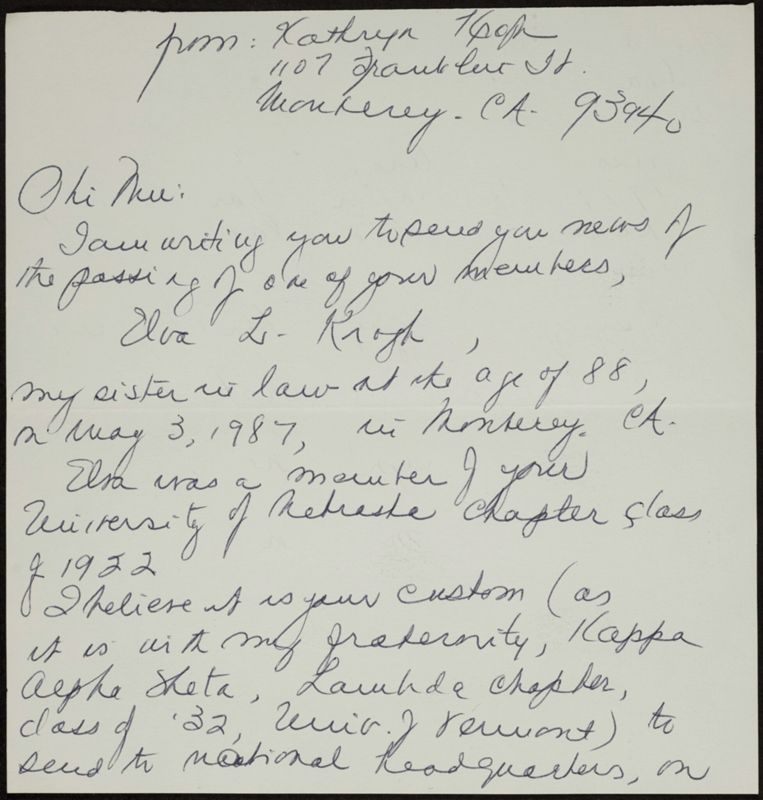 from: Kathryn Krogh
1107 Franklin St.
Monterey. CA. 93940
Phi Mu:
I am writing you to send you news of
the passing of one of your members,
Elva L. Krogh,
my sister in law at the age of 88,
on May 3, 1987, in Monterey. CA.
Elva was a member of your
University of Nebraska Chapter class
of 1922
I believe it is your custom (as
it is with my fraternity, Kappa
Alpha Theta, Lambda Chapter,
class of '32, Univ. of Vermont) to
send to national headquarters, on